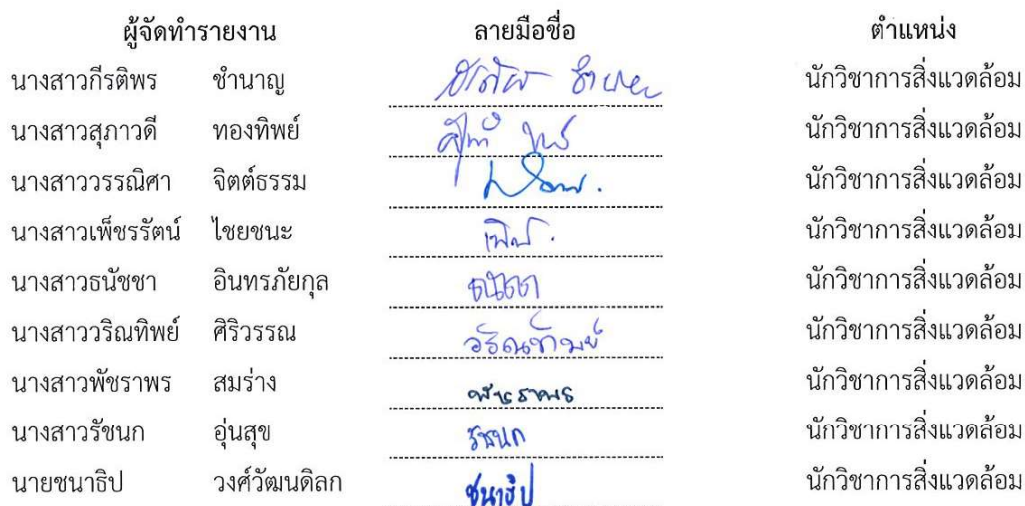 ผู้จัดทำรายงาน ลายมือชื่อ ตำแหน่ง
นางสาวกีรติพร ชำนาญ นักวิชาการสิ่งแวดล้อม
นางสาวสุภาวดี ทองทิพย์ นักวิชาการสิ่งแวดล้อม
นางสาววรรณิศา จิตต์ธรรม นักวิชาการสิ่งแวดล้อม
นางสาวเพ็ชรรัตน์ ไชยชนะ นักวิชาการสิ่งแวดล้อม
นางสาวธนัชชา อินทรภัยกุล นักวิชาการสิ่งแวดล้อม
นางสาววริณทิพย์ ศิริวรรณ วริณทิพย์ นักวิชาการสิ่งแวดล้อม
นางสาวพัชราพร สมร่าง พัชราพร นักวิชาการสิ่งแวดล้อม
นางสาวรัชนก อุ่นสุข รัชนก นักวิชาการสิ่งแวดล้อม
นายชนาธิป วงศ์วัฒนดิลก ชนาธิป นักวิชาการสิ่งแวดล้อม